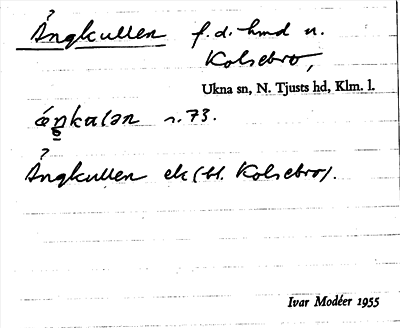 Ångkullen f. d. hmd u.
Kolsebro,
Ukna sn, N. Tjusts hd, Klm. l.
s. 73.
Ångkullen ek (bl. Kolsebro).
Ivar Modéer 1955